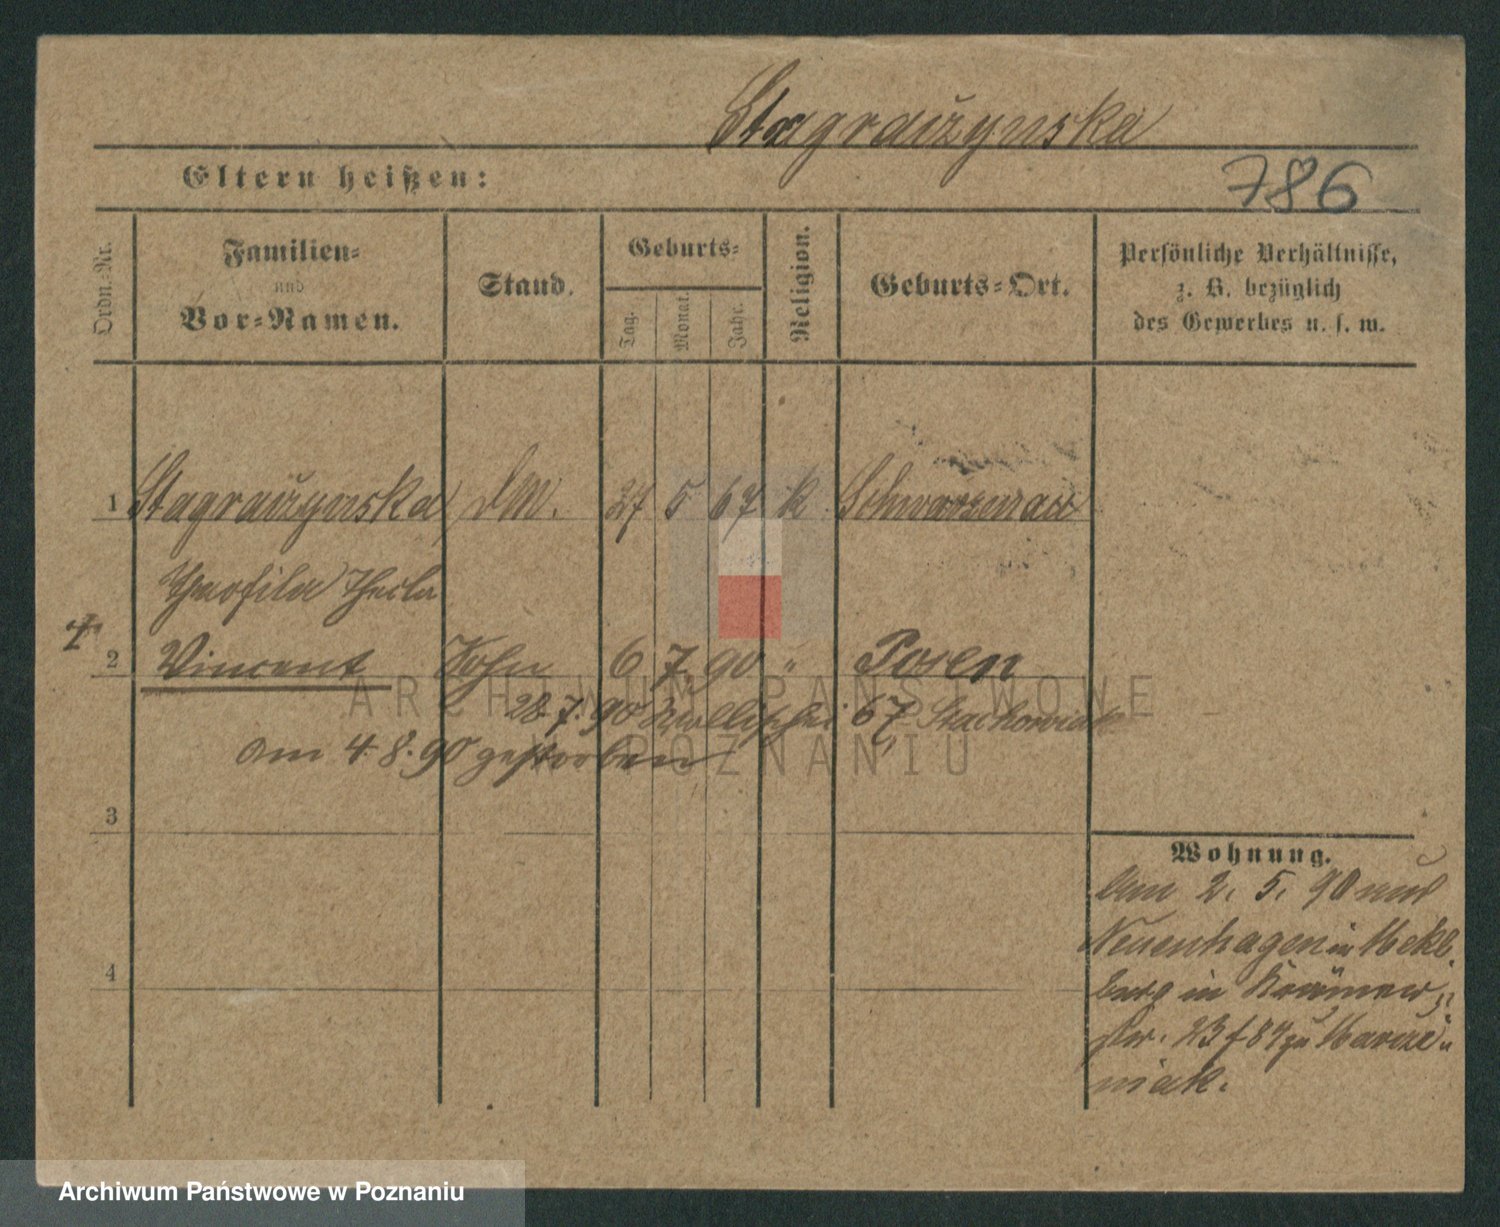 Stagraczynska
Eltern heißen:
786
Ordn.-Nr.
Familien-
und
Vor-Namen.
Stand.
Geburts-
Tag.
Monat.
Jahr.
Religion.
Geburts-Ort.
Persönliche Verhältnisse,
z. B. bezüglich
des Gewerbes u. s. w.
1 Stagraczynska 27 5 67 k Schwarzenau
Theofila Thecla
2 Vincent Sohn 6 7 90 " Posen
28. 7. 90 67 Stachowiak
am 4. 8. 90 gestorben
3
4
Wohnung.
2. 5. 90
Neuenhagen in Mekl
burg in
str. 23 zu
niak.
ARCHIWUM PAŃSTWOWE
W POZNANIU
Archiwum Państwowe w Poznaniu